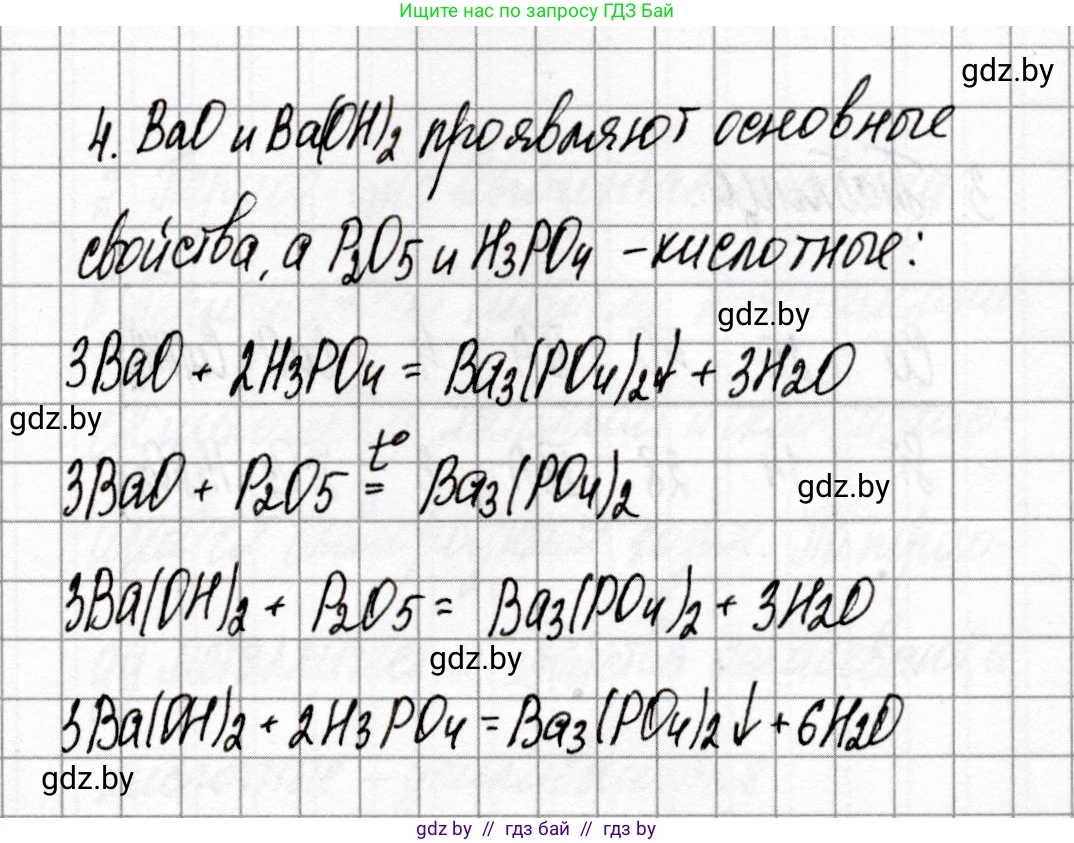 Ищите нас по запросу ГДЗ Бай
gdz.by
4. BaO и Ba(OH)2 проявляют основные
свойства, а P2O5 и H3PO4 - кислотные:
gdz.by
3BaO + 2H3PO4 = Ba3(PO4)2↓ + 3H2O
gdz.by
3BaO + P2O5 t°= Ba3(PO4)2
gdz.by
3Ba(OH)2 + P2O5 = Ba3(PO4)2 + 3H2O
gdz.by
3Ba(OH)2 + 2H3PO4 = Ba3(PO4)2↓ + 6H2O
gdz.by
gdz.by // гдз бай // гдз by